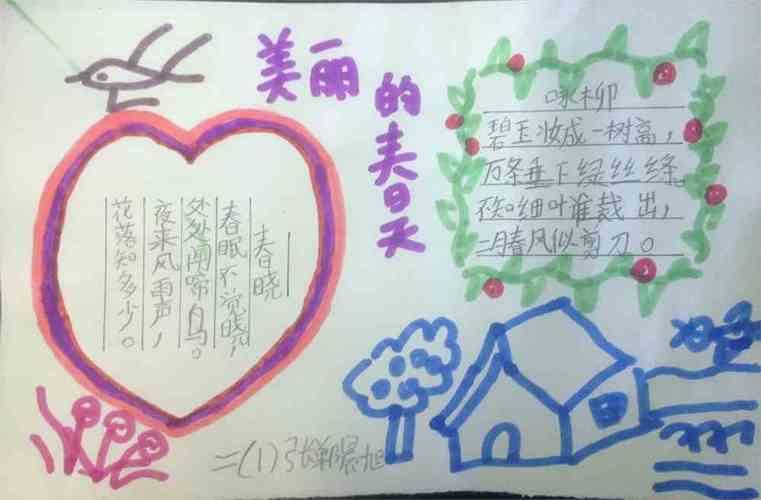 美丽
的春天
春晓
春眠不觉晓，
处处闻啼鸟。
夜来风雨声，
花落知多少。
咏柳
碧玉妆成一树高，
万条垂下绿丝绦
不知细叶谁裁出，
二月春风似剪刀。
二(1)张